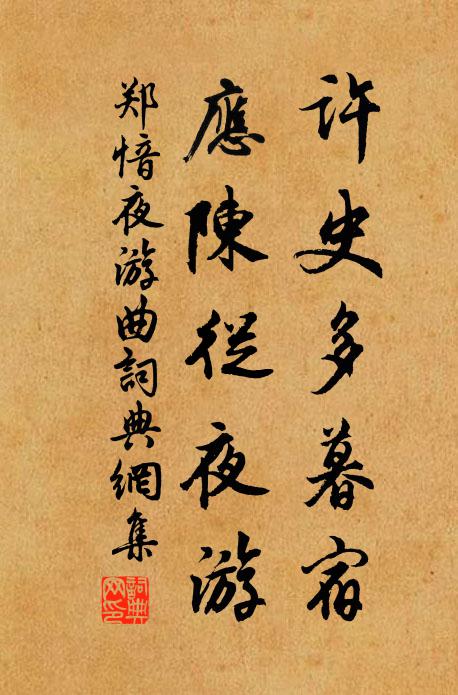 許史多暮宿
應陳從夜游
郑愔夜游曲詞典網集
詞典网印